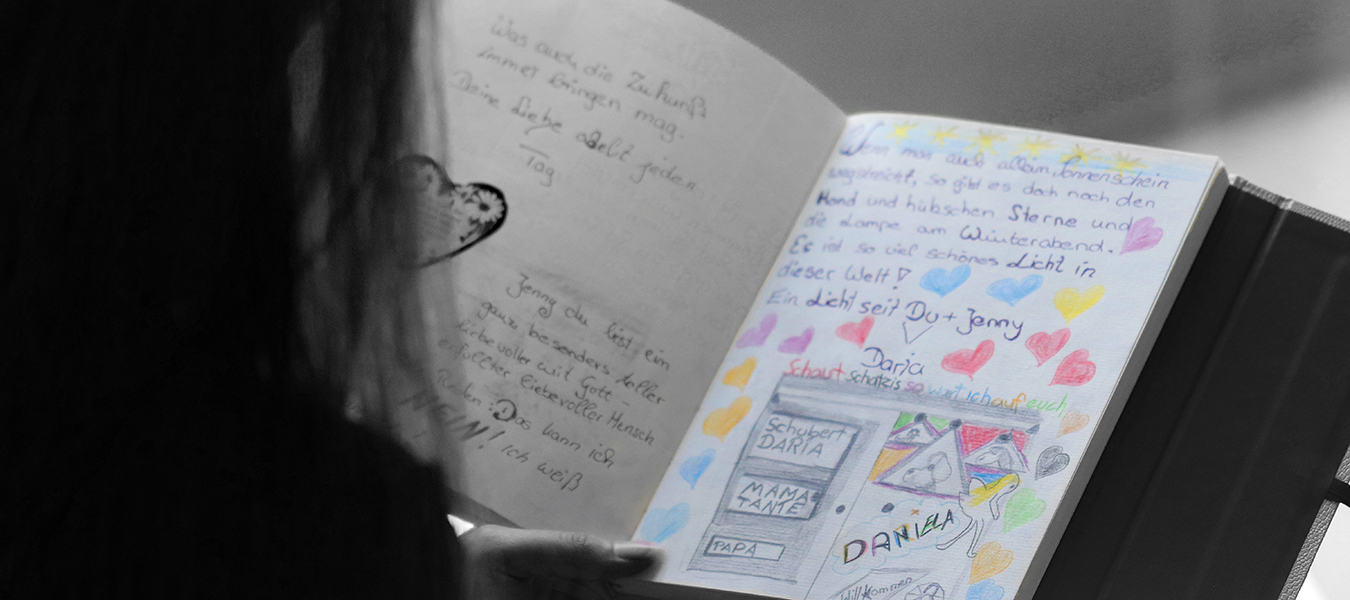 Was auch die Zukunft
immer bringen mag.
Deine Liebe jeden
Tag
Jenny du bist ein
ganz besonders toller
liebevoller mit Gott
erfüllter liebevoller Mensch
Das kann ich
NEIN! ich weiß
Wenn man auch allem Sonnenschein
wegstreicht, so gibt es doch noch den
Mond und hübschen Sterne und
die Lampe am Winterabend.
Es ist so viel schönes Licht in
dieser Welt!
Ein Licht seit Du + Jenny
Daria
Schaut schatzis so wart ich auf euch
Schubert
DARIA
MAMA
TANTE
PAPA
DANIELA
Willkommen